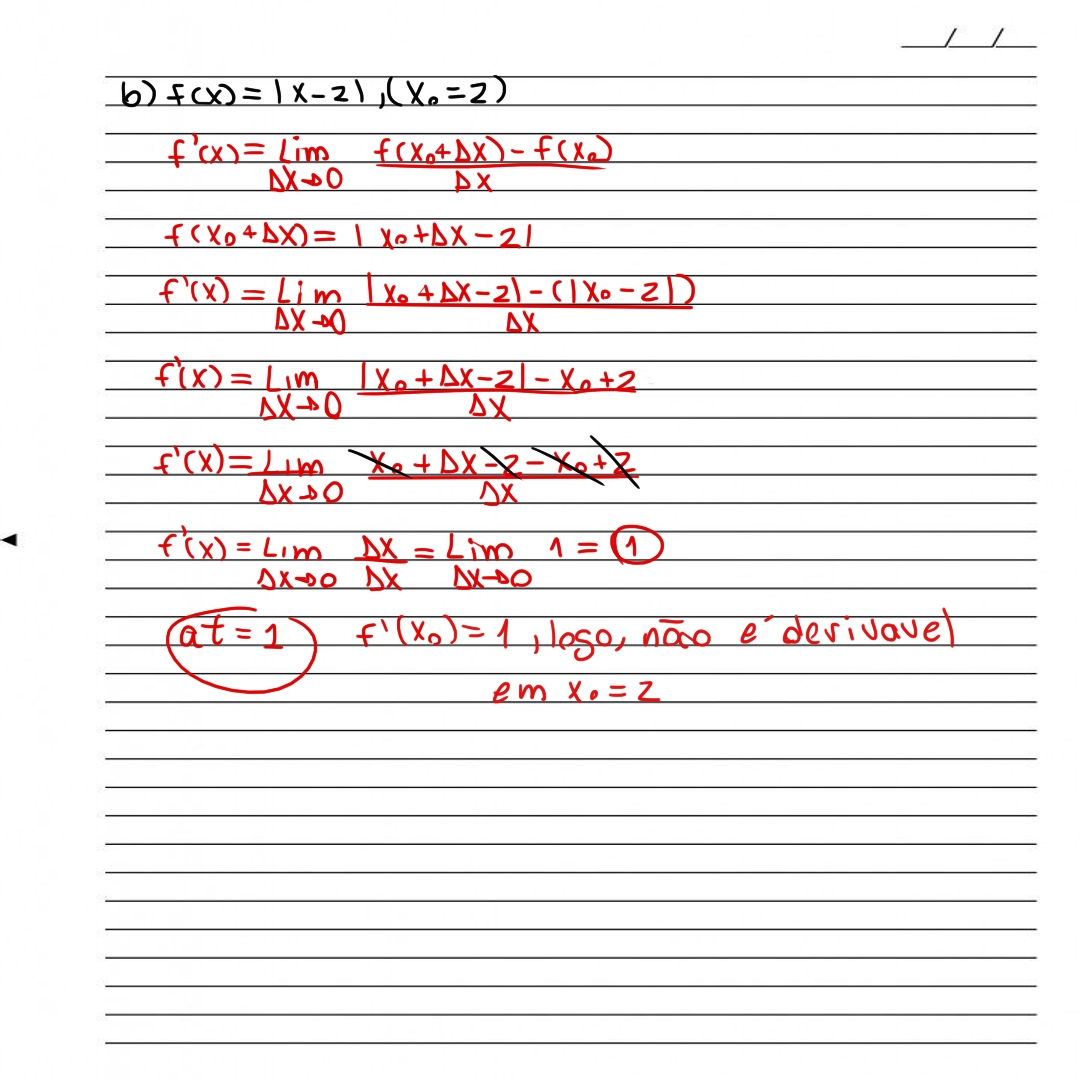 __/__/__
b) f(x) = |x-2|, (x₀=2)
f'(x) = Lim Δx→0 f(x₀+Δx) - f(x₀) / Δx
f(x₀+Δx) = |x₀+Δx-2|
f'(x) = Lim Δx→0 |x₀+Δx-2| - (|x₀-2|) / Δx
f'(x) = Lim Δx→0 |x₀+Δx-2| - x₀+2 / Δx
f'(x) = Lim Δx→0 x₀+Δx-2-x₀+2 / Δx
f'(x) = Lim Δx→0 Δx/Δx = Lim Δx→0 1 = 1
at = 1 f'(x₀) = 1, logo, não é derivavel
em x₀ = 2